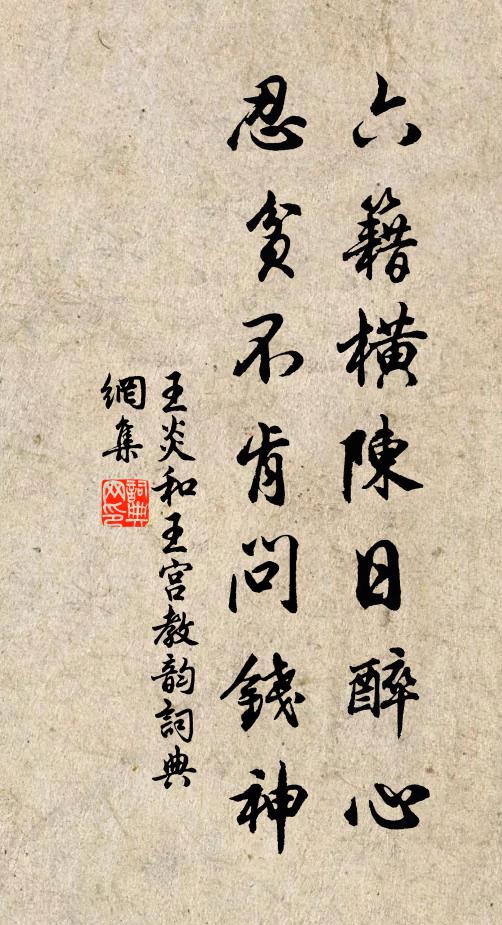 六籍橫陳日醉心
忍貧不肯問錢神
王炎和王宮教韵詞典
網集
詞典
网印